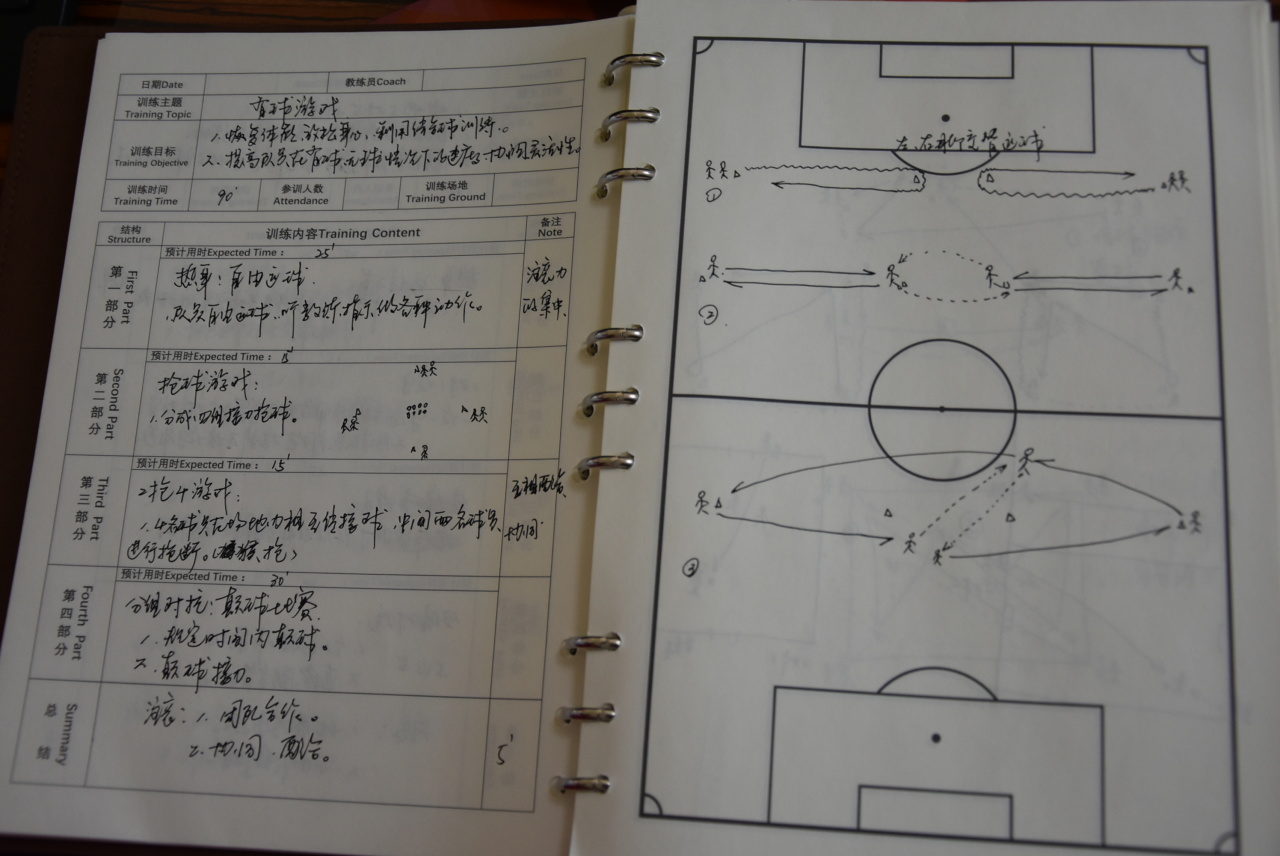 日期Date
教练员Coach
训练主题
Training Topic
有球游戏
训练目标
Training Objective
1、恢复体能、放松身心、利用结合球训练。
2、提高队员在有球、无球情况下的速度、协调灵活性。
训练时间
Training Time
90'
参训人数
Attendance
训练场地
Training Ground
结构
Structure
训练内容Training Content
备注
Note
第一部分
First Part
预计用时Expected Time： 25'
热身：自由运球.
队员自由运球、听教练指示做各种动作。
注意力
的集中
第二部分
Second Part
预计用时Expected Time： 15'
抢球游戏：
1、分成四组接力抢球。
第三部分
Third Part
预计用时Expected Time： 15'
2抢4游戏：
1、4名球员在场地内相互传接球，中间两名球员
进行抢断。
互相配合、
协同
第四部分
Fourth Part
预计用时Expected Time： 30'
分组对抗：颠球比赛.
1、规定时间内颠球。
2、颠球接力。
总结
Summary
注意：1、团队合作。
2、协同、配合。
5'
左、右脚交替运球
①
②
③